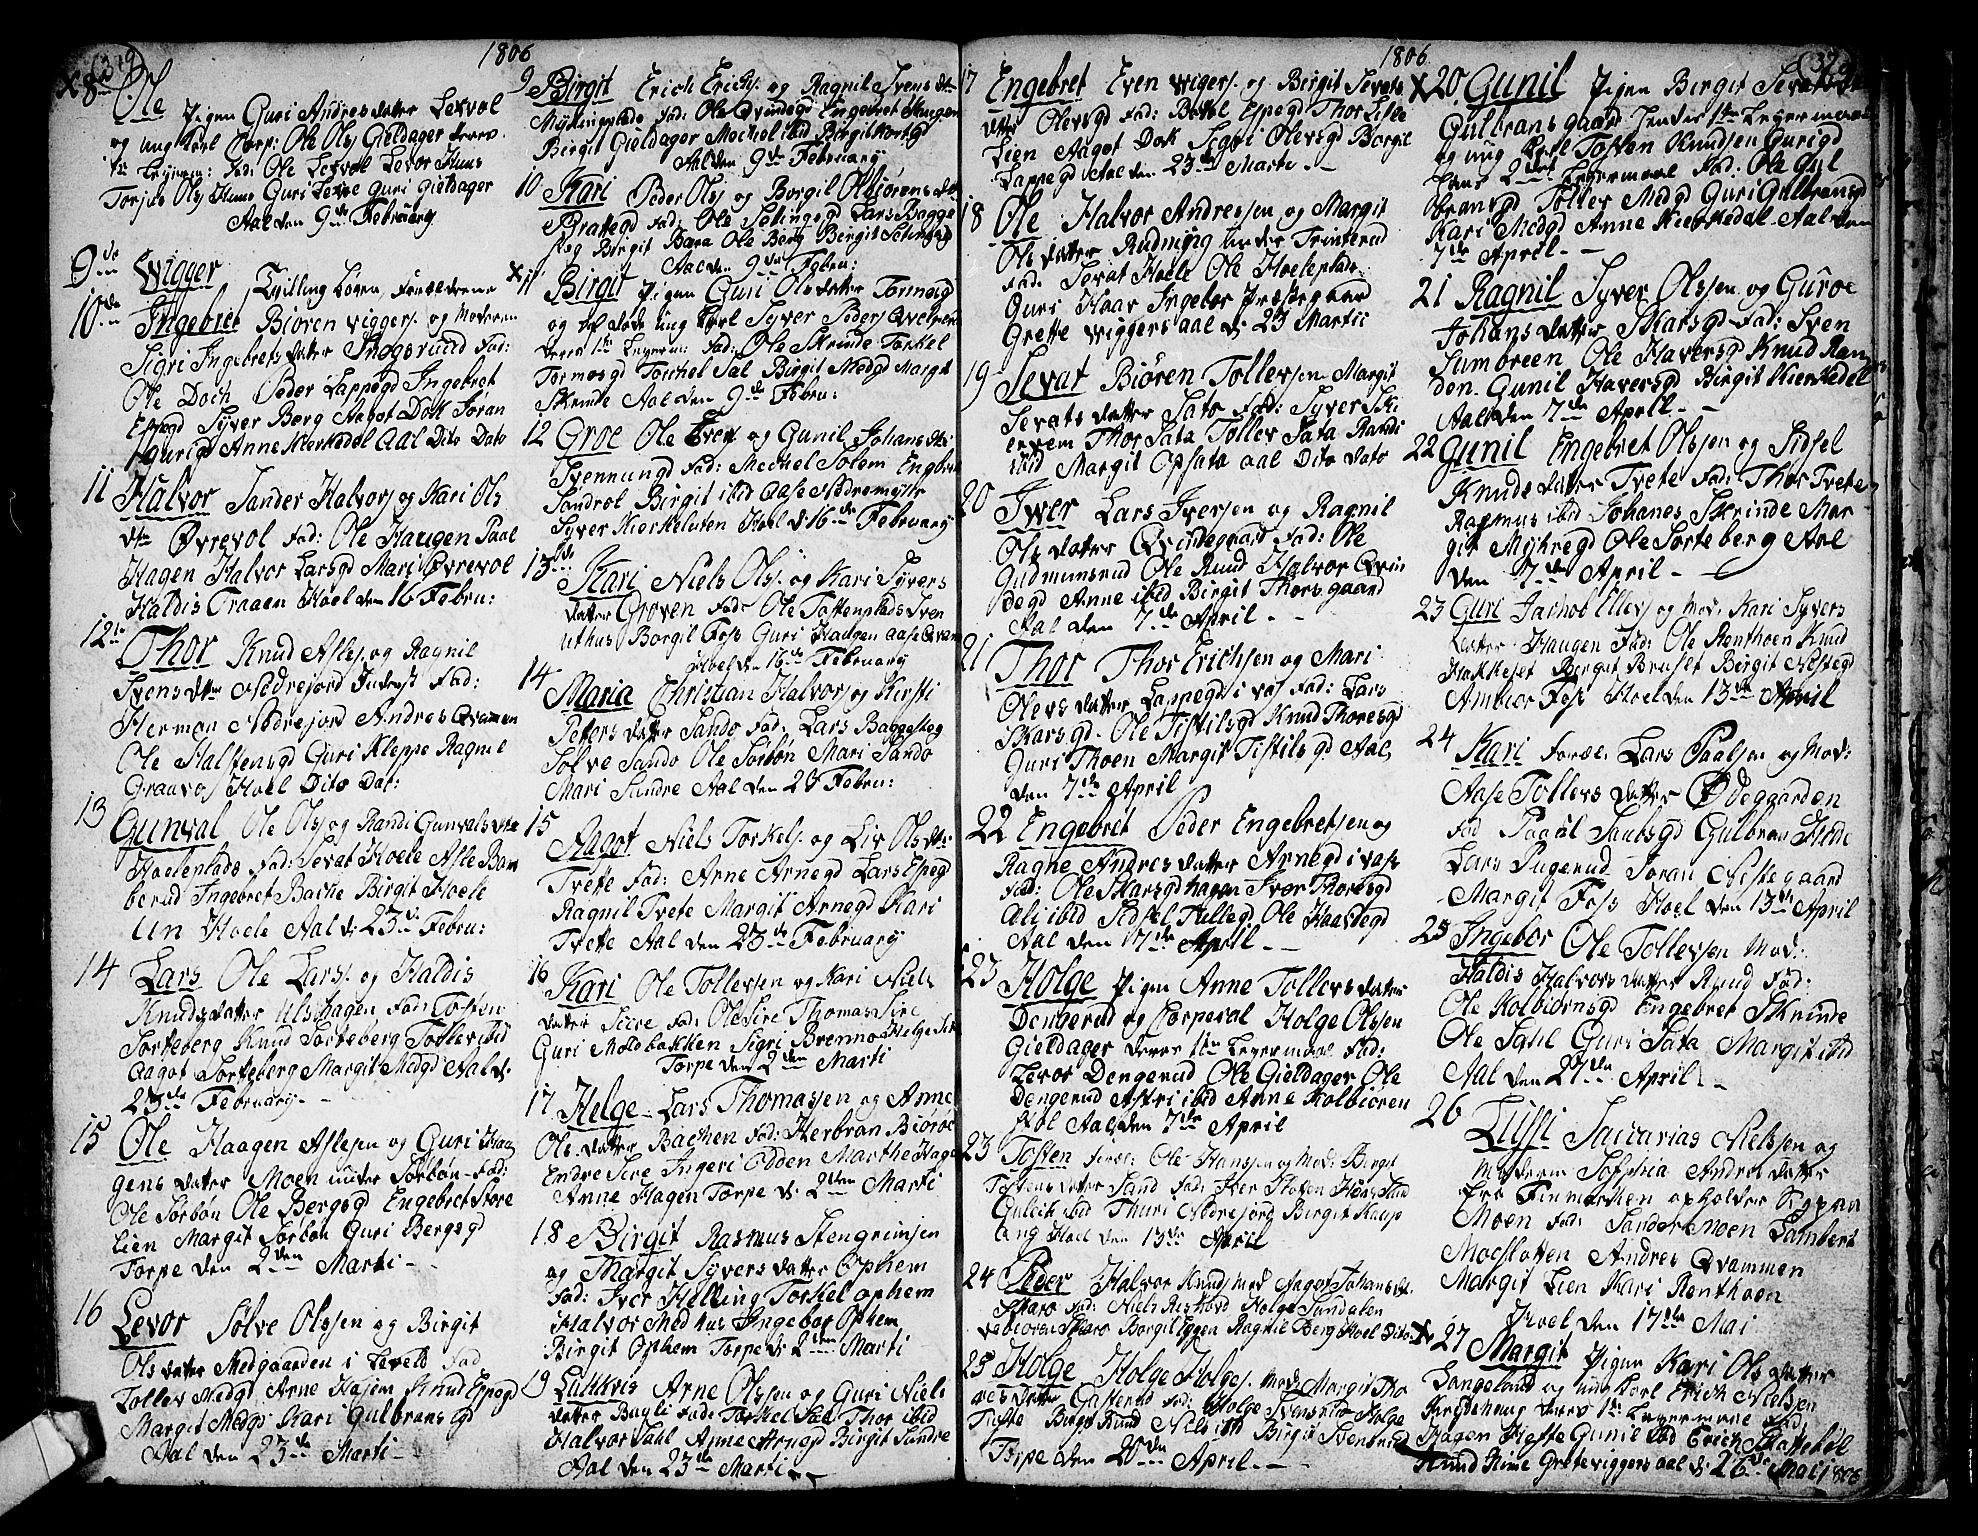 (319)
1806
X 8de Ole Pigen Guri Andresdatter Lexvol
og ung Karl Corp: Ole Olsj Gieldager deres
1te Leyerm: Fad: Ole Lexvol Levor Huus
Torjus Olsj Huus Guri Lexve Guri Gieldager
Aal den 9de February
9de Wigger
Tvilling Løgen, Forældrene
10de Ingebret Biøren Wiggersj. og Moderen
Sigri Ingebretsdatter Fad:
Ole Doch Peder Lappegd Ingebret
Espegd Syver Berg Aagot Dok Jøran
Gurigd Anne Kierkedel Aal Dito Dato
11 Halvor Sander Halvorsj og Kari Ols
dtr Øvrevol Fad: Ole Haugen Paal
Hagen Halvor Larsgd Mari Øvrevol
Haldis Traaen Hoel den 16 Febru:
12te Thor Knud Aslesj. og Ragnil
Svensdtr Nedrejord Fad:
Herman Nedrejord Andres Qvamen
Ole Halstensgd Guri Kleppe Ragnil
Graavos Hoel Dito Dat:
13 Gunval Ole Olsj og Randi Gunvalsdtr
Hoeleplads Fad: Sevat Hoele Asle Bam
berud Ingebret Bache Birgit Hoele
Un Hoele Aal d: 23de Febru:
14 Lars Ole Larsj. og Haldis
Knudsdatter Ulshagen Fad: Tosten
Sorteberg Knud Sorteberg Tollev ibid
Aagot Sorteberg Margit Medgd Aal d:
23de February
15 Ole Haagen Aslesen og Guri Haa
gensdatter Moen under Sørbøn Fad:
Ole Sørbøn Ole Bergsgd Engebret Store
lien Margit Sørbøn Guri Bergsgd
Torpe den 2den Marti
16 Levor Sølve Olssen og Birgit
Olsdatter Medgaarden i Leveld Fad
Tollev Medgd Arne Hajem Knud Espegd
Margit Medgd Kari Gulbransgd
Aal den 23de Marti
9 Birgit Erich Erichsj. og Ragnil Svensdtr
Myhlingplads Fad: Ole Qvindegd Engebret Haugen
Birgit Gieldager Mechel ibid Birgit Kortgd
Aal den 9de February
10 Kari Peder Olsj og Borgil Olbjørensdtr
Brattegd Fad: Ole Sætingsgd Lars Bagge
steg Birgit Bara Ole Berg Birgit Sætingsgd
Aal den 9de Febru:
X 11 Birgit Pigen Guri Olsdatter Tormosgd
og ung Karl Syver Peders
deres 1te Leyerm: Fad: Ole Skrinde Torkel
Tormosgd Torchel Sal Birgit Medgd Margit
Skrinde Aal den 9de Febru:
12 Groe Ole Iversj. og Gunil Johansdtr
Svennungd Fad: Mechel Solem Engbret
Sandrol Birgit ibid Aase Nedremyhr
Syver Kierkeluten Hoel d: 16de February
13de Kari Niels Olsj. og Kari Syvers
datter Groven Fad: Ole Toftenplads Sven
uthus Borgil Foss Guri Haugen Aase Qvam
Hoel den 16de February
14 Maria Christian Halvorsj og Kirsti
Petersdatter Sando Fad: Lars Baggesteg
Sølve Sando Ole Sørbøn Mari Sando
Mari Sundre Aal den 20 Febru:
15 Aagot Niels Torkelsj. og Liv Olsdtr
Tvette Fad: Arne Arnegd Lars Espegd
Ragnil Tvete Margit Arnegd Kari
Tvette Aal den 23de February
16 Kari Ole Tollevsen og Kari Niels
datter Sire Fad: Ole Sire Thomas Sire
Guri Moldbakken Sigri Brenno Helge Sire
Torpe den 2den Marti
17 Helge Lars Thomasjen og Anne
Olsdatter Bachen Fad: Herbran Biøroe
Endre Sire Ingeri Odden Marthe Hage
Anne Hagen Torpe d: 2den Marti
18 Birgit Rasmus Stengrimsen
og Margit Syversdatter Ophem
Fad: Iver Helling Torkel ophem
Halvor Medhus Ingebor Ophem
Birgit Ophem Torpe d: 2den Marti
19 Lukkris Arne Olssen og Guri Niels
datter Bagli Fad: Torkel Sal Thor ibid
Halvor Sahl Anne Arnegd Birgit Sundre
Aal den 23de Marti
1806
17 Engebret Even Wigersj. og Birgit Sevats
datter Olevsgd Fad: Bottol Espegd Thor Lisle
Lien Aagot Dok Sigri Olevsgd Borgil
Lappegd Aal den 23de Marti
18 Ole Halvor Andresjen og Margit
Olsdatter Rudmyhr under Trinterud
Fad: Sevat Hoele Ole Hoeleplads
Guri Haav Ingebor Prestegaard
Grette Wiggers aal d: 23 Martii
19 Sevat Biøren Tollevsen Margit
Sevatsdatter Sato Fad: Syver Ski
ervem Thor Sata Tollev Sata Randi
ibid Margit Opsata aal Dito Dato
20 Iver Lars Iversen og Ragnil
Olsdatter Qvindegaard Fad: Ole
Gudmunsrud Ole Ruud Halvor Qvin
degd Anne ibid Birgit Thorsgaard
Aal den 7de April
21 Thor Thor Erichsen og Mari
Olevsdatter Lappegd i vas Fad: Lars
Skarsgd. Ole Tistilsgd Knud Thoresgd
Guri Thoen Margit Tistilsgd Aal
den 7de April
22 Engebret Peder Engebretsen og
Ragne Andresdatter Arnegd i vass
Fad: Ole Skarsgdhagen Ivor Thoresgd
Ali ibid Sidsel Tullegd Ole Haavdegd
Aal den 17de April
23 Holge Pigen Anne Tollevsdatter
Dengerud og Corperal Holge Olssen
Gieldager deres 1te Leyermaal Fad:
Levor Dengerud Ole Gieldager Ole
Dengerud Astri ibid Anne Kolbioren
Aal den 7de April
23 Tosten Foræl: Ole Hanssen og Mod: Birgit
Tostensdatter Sand Fad: Iver Sand
Guleik ibid Thuri Nedrejord Birgit
ang Hoel den 13de April
24 Peder Halvor Knudsj Mod Aagot Johansdtr
Skaro Fad: Niels Rishovd Holge Sundalen
Skaro Borgil Eggen Ragnil Berg Hoel Dito
25 Holge Holge Holgesj. Mod: Margit Tho
resdatter Fad: Holge Svensrud Holge
Tufte Birgit Ruud Niels ibid Birgit Svensrud
Torpe den 20de April
X 20 Gunil Pigen Birgit Sevatsdtr
Gulbransgaard hendes 1te Leyermaal
og ung Karl Tosten Knudsen Gurigd
hans 2det Leyermaal Fad. Ole Gul
bransgd Tollev Medgd Guri Gulbransgd
Kari Medgd Anne Kierkedel Aal den
7de April
21 Ragnil Syver Olssen og Guroe
Johansdatter Skarsgd Fad: Sven
Sumbreen Ole Haversgd Knud Ran
den. Gunil Haversgd Birgit Kierkedel
Aal den 7de April
22 Gunil Engebret Olssen og Sidsel
Knudsdatter Tvete Fad: Thor Tvete
Rasmus ibid Johanes Skrinde Mar
git Myhregd Ole Sorteberg Aal
den 7de April
23 Guri Jachob Ellevsj og Mod: Kari Syvers
datter Haugen Fad: Ole Renthoen Knud
Hakkeset Bergit Bruset Birgit Nestegd
Ambior Foss Hoel den 13de April
24 Kari Foræl: Lars Paalsen og Mod:
Aase Tollevsdatter Ødegaarden
Fad Paaal Gulbran
Lars Rugerud Joran Nestegaard
Margit Foss Hoel den 13de April
25 Ingebor Ole Tollevsen Mod:
Haldis Halvorsdatter Ruud Fad:
Ole Kolbiornsgd Engebret Skrinde
Ole Sahl Guri Sata Margit ibid
Aal den 27de April
26 Lussi Saccarias Nielssen og
Moderen Sophia Andresdatter
fra Finmarken opholder
Moen Fad: Sander Moen Lambert
Moeslotten Andres Qvammen
Margit Lien Kari Renthoen
Hoel den 17de Mai
X 27 Margit Pigen Kari Olsdatter
Langeland og ung Karl Erich Nielsen
deres 1te Leyermaal Fad:
Hagen Hefte Gunil ibid Erich Skattebøl
Knud Kime Grete Viggers aal d: 26de Mai 1806